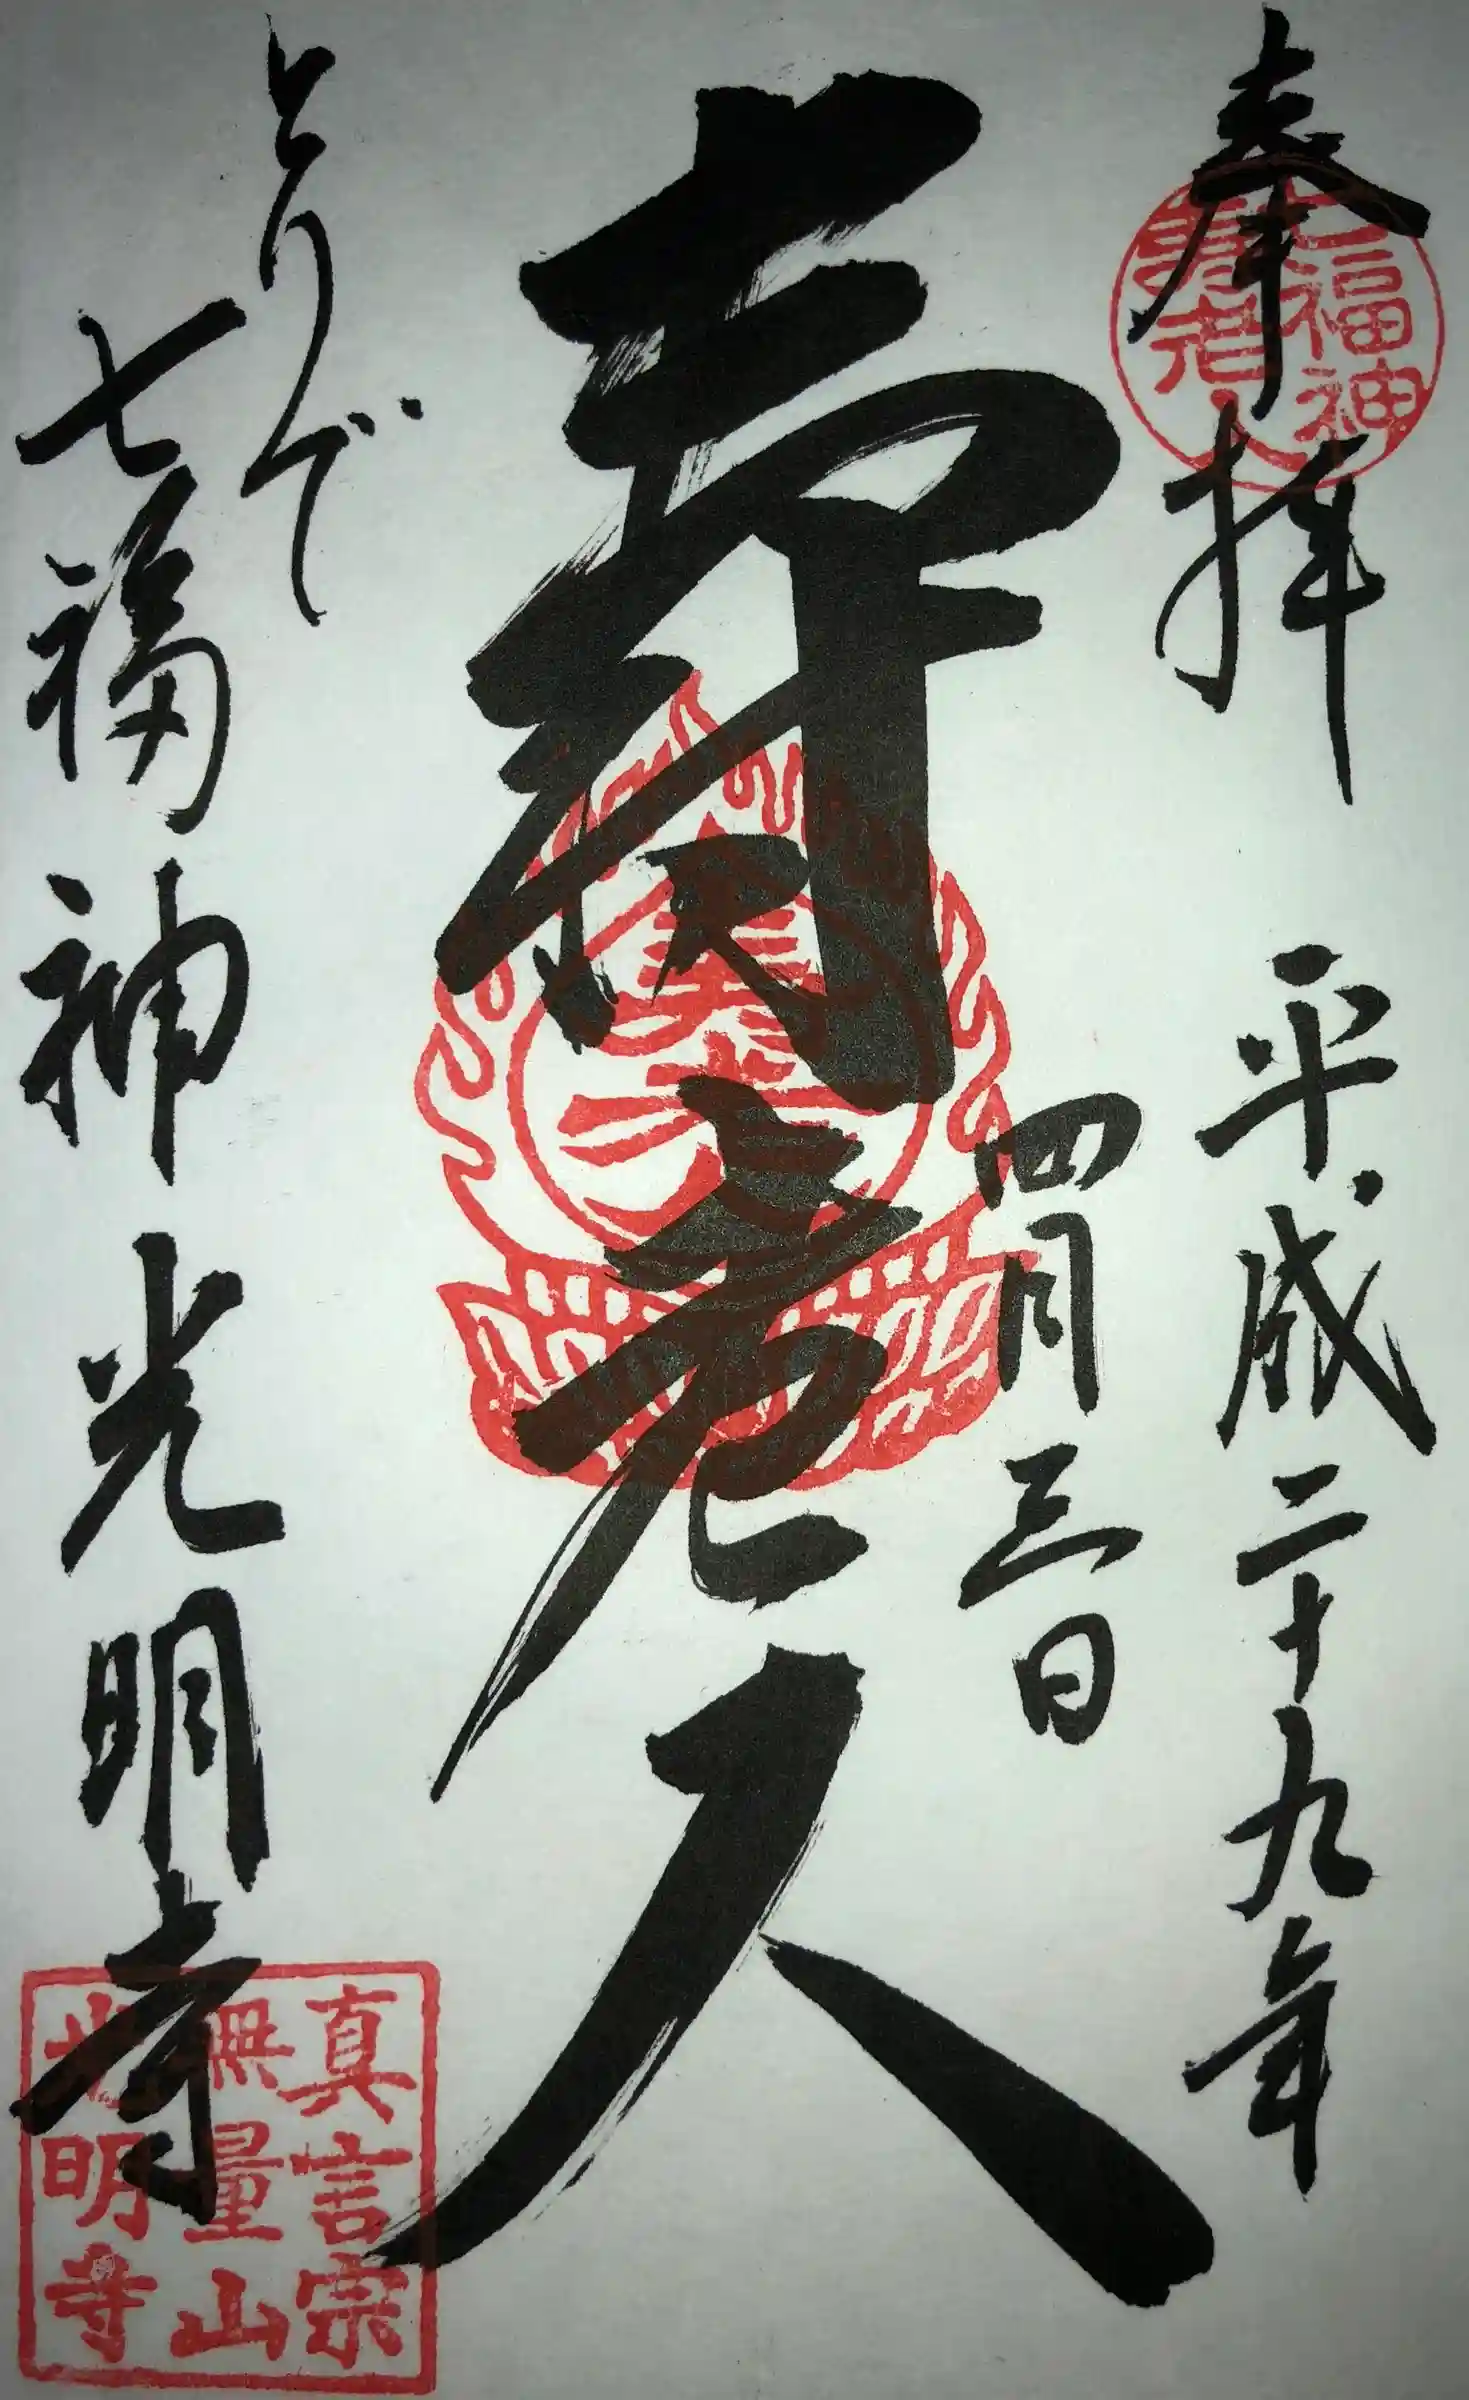 奉拝
平成二十九年
四月三日
七福神
寿老人
寿老人
とりで
七福神 光明寺
真言宗
無量山
光明寺